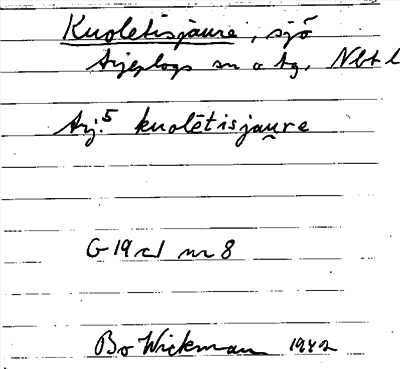 Kuoletisjaure, sjö
Arjeplogs sn o tg, Nbt l
Arj.⁵ kuolētisjau̯re
G 19 cd nr 8
Bo Wickman 1942